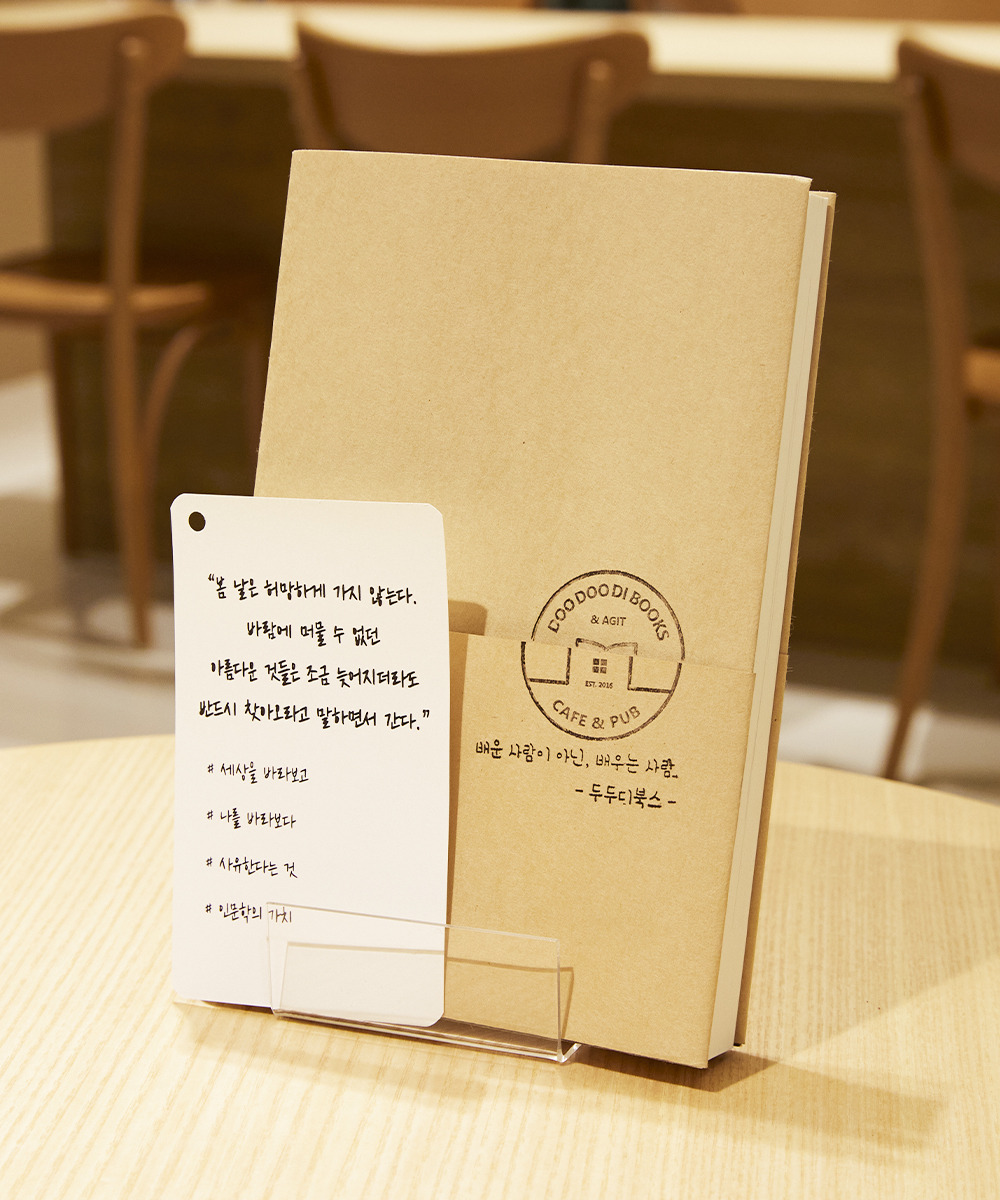 “봄 날은 허망하게 가지 않는다.
바람에 머물 수 없던
아름다운 것들은 조금 늦어지더라도
반드시 찾아오라고 말하면서 간다.”
# 세상을 바라보고
# 나를 바라보다
# 사유한다는 것
# 인문학의 가치
DOO DOO DI BOOKS
& AGIT
EST. 2016
CAFE & PUB
배운 사람이 아닌, 배우는 사람_
- 두두디북스 -